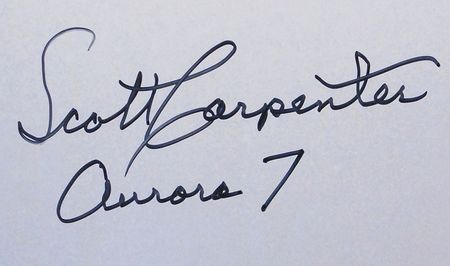 Scott Carpenter
Aurora 7